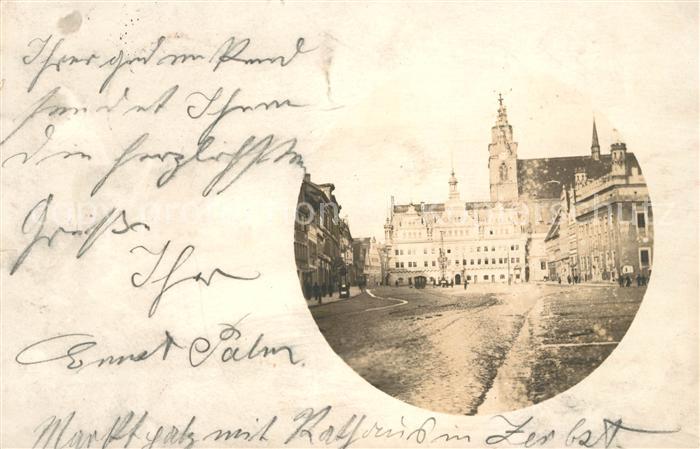 Ihrer gedenkend
sendet Ihnen
die herzlichsten
Grüße
Ihr
Ernst Palm.
Marktplatz mit Rathaus in Zerbst.